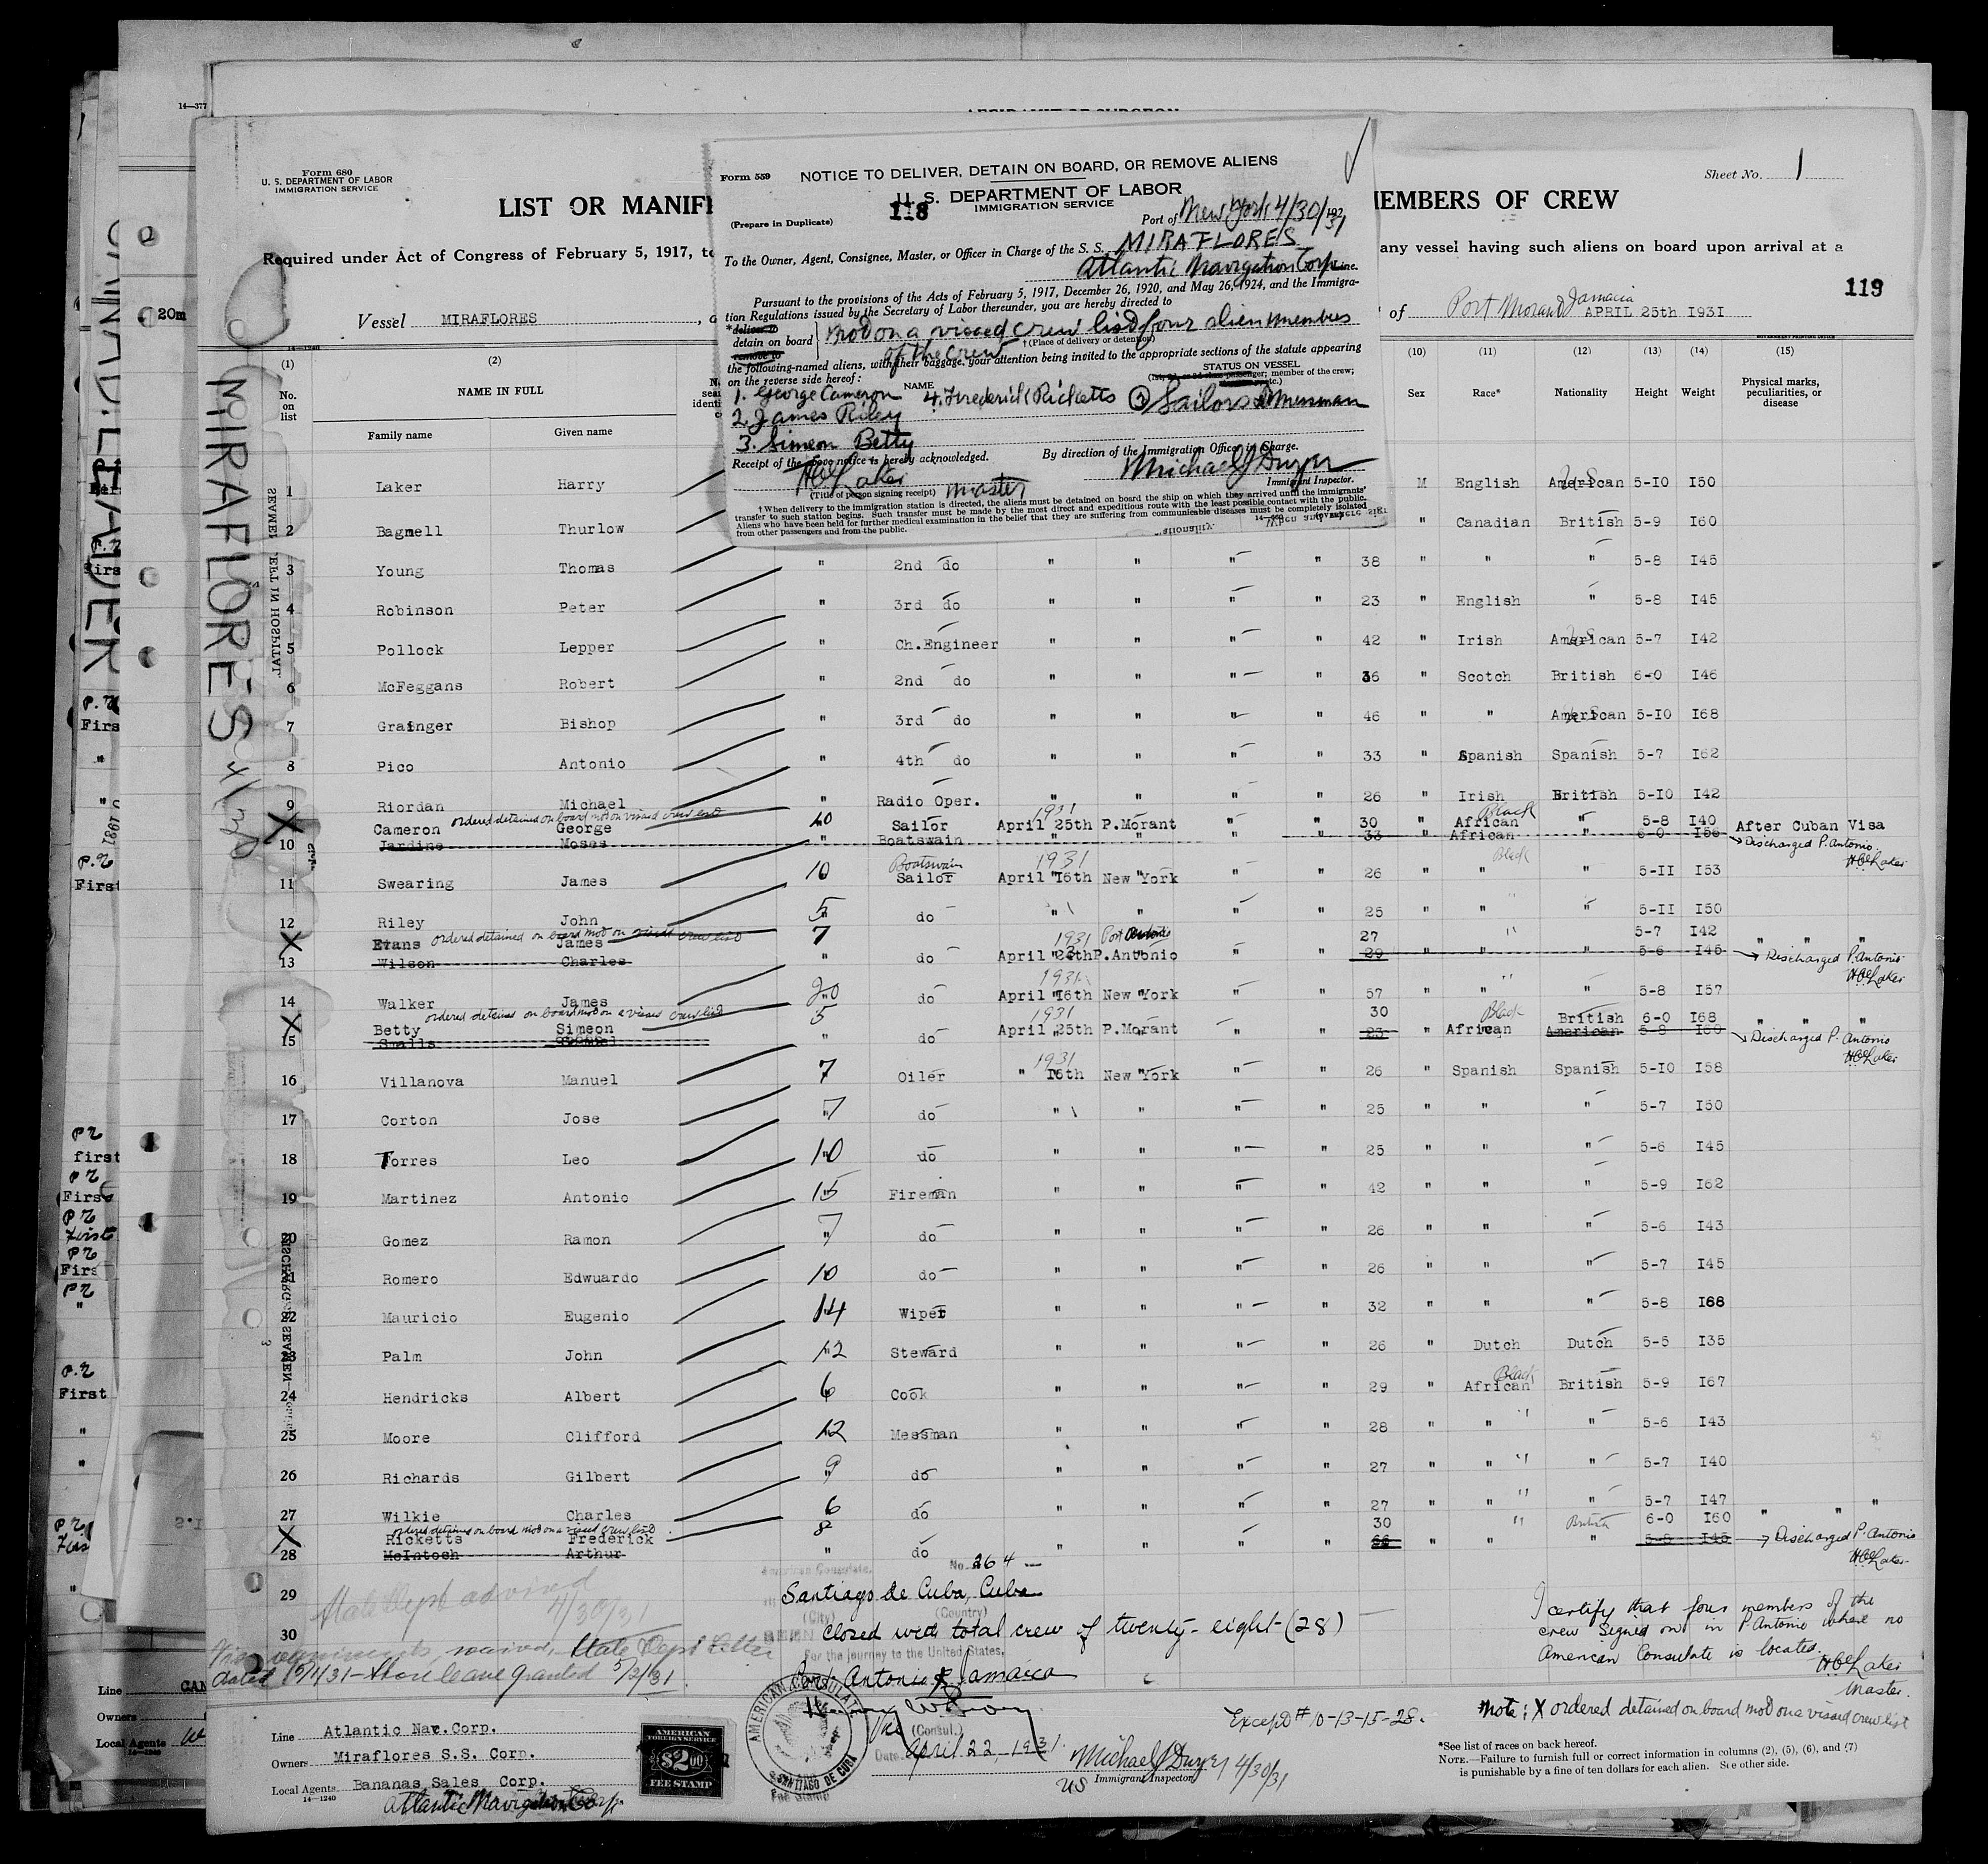 14—377
Form 680
U. S. DEPARTMENT OF LABOR
IMMIGRATION SERVICE
LIST OR MANIFE
EMBERS OF CREW
Sheet No. 1
Required under Act of Congress of February 5, 1917, to
any vessel having such aliens on board upon arrival at a
119
Vessel MIRAFLORES
of Port Morant Jamaica APRIL 25th 1931
Form 559
NOTICE TO DELIVER, DETAIN ON BOARD, OR REMOVE ALIENS
U. S. DEPARTMENT OF LABOR
IMMIGRATION SERVICE
118
(Prepare in Duplicate)
Port of New York 4/30/1931
To the Owner, Agent, Consignee, Master, or Officer in Charge of the S. S. MIRAFLORES
Atlantic Navigation Corp Line.
Pursuant to the provisions of the Acts of February 5, 1917, December 26, 1920, and May 26, 1924, and the Immigra-
tion Regulations issued by the Secretary of Labor thereunder, you are hereby directed to
*deliver to
detain on board
remove to
not on a visaed crew list four alien members
of the crew
† (Place of delivery or detention)
the following-named aliens, with their baggage, your attention being invited to the appropriate sections of the statute appearing
on the reverse side hereof:
NAME
STATUS ON VESSEL
(1st, 2d, or 3d class passenger; member of the crew; etc.)
1. George Cameron 4. Frederick Ricketts ③ Sailors & Messman
2. James Riley
3. Simeon Betty
Receipt of the above notice is hereby acknowledged.
By direction of the Immigration Officer in Charge.
H C Laker
Michael J Dwyer
Immigrant Inspector.
(Title of person signing receipt) Master
† When delivery to the immigration station is directed, the aliens must be detained on board the ship on which they arrived until the immigrants'
transfer to such station begins. Such transfer must be made by the most direct and expeditious route with the least possible contact with the public.
Aliens who have been held for further medical examination in the belief that they are suffering from communicable diseases must be completely isolated
from other passengers and from the public.
(1) (2) (10) (11) (12) (13) (14) (15)
No. on list NAME IN FULL Sex Race* Nationality Height Weight Physical marks, peculiarities, or disease
Family name Given name
1 Laker Harry M English American U.S. 5-10 150
2 Bagnell Thurlow " Canadian British 5-9 160
3 Young Thomas " 2nd do " " " " 38 " " " 5-8 145
4 Robinson Peter " 3rd do " " " " 23 " English " 5-8 145
5 Pollock Lepper " Ch.Engineer " " " " 42 " Irish American U.S. 5-7 142
6 McFeggans Robert " 2nd do " " " " 36 " Scotch British 6-0 146
7 Grainger Bishop " 3rd do " " " " 46 " " American U.S. 5-10 168
8 Pico Antonio " 4th do " " " " 33 " Spanish Spanish 5-7 162
9 Riordan Michael " Radio Oper. " " " " 26 " Irish British 5-10 142
ordered detained on board not on visaed crew list
X Cameron George 10 Sailor 1931 April 25th P.Morant " " 30 " African Black " 5-8 140 After Cuban Visa
10 Jardine Moses " Boatswain " " " " 33 " African " 6-0 156 Discharged P. Antonio. H C Laker
11 Swearing James 10 Boatswain Sailor 1931 April 16th New York " " 26 " " Black " 5-11 153
12 Riley John 5 do " " " " 25 " " " 5-11 150
X Evans ordered detained on board not on visaed crew list James 7 1931 Port Antonio 27 " 5-7 142 " " "
13 Wilson Charles " do April 23th P.Antonio " " 29 " " " 5-6 145 Discharged P. Antonio H C Laker
14 Walker James 20 do 1931 April 16th New York " " 57 " " " 5-8 157
ordered detained on board not on a visaed crew list
X Betty Simeon 5 1931 April 25th P.Morant " " 30 " African Black British 6-0 168 " " "
15 Smalls Samuel " do 23 American 5-8 160 Discharged P. Antonio H C Laker
16 Villanova Manuel 7 Oiler 1931 " 16th New York " " 26 " Spanish Spanish 5-10 158
17 Corton Jose 7 do " " " " 25 " " " 5-7 150
18 Torres Leo 10 do " " " " 25 " " " 5-6 145
19 Martinez Antonio 15 Fireman " " " " 42 " " " 5-9 162
20 Gomez Ramon 7 do " " " " 26 " " " 5-6 143
21 Romero Edwuardo 10 do " " " " 26 " " " 5-7 145
22 Mauricio Eugenio 14 Wiper " " " " 32 " " " 5-8 168
23 Palm John 12 Steward " " " " 26 " Dutch Dutch 5-5 135
24 Hendricks Albert 6 Cook " " " " 29 " African Black British 5-9 167
25 Moore Clifford 12 Messman " " " " 28 " " " 5-6 143
26 Richards Gilbert 9 do " " " " 27 " " " 5-7 140
27 Wilkie Charles 6 do " " " " 27 " " " 5-7 147 " " "
ordered detained on board not on a visaed crew list
X Ricketts Frederick 8 30 " British 6-0 160
28 McIntosh Arthur " do " " " " " " " 5-8 145 Discharged P. Antonio H C Laker
29
30
American Consulate, No. 264
Santiago de Cuba, Cuba
(City) (Country)
Closed with total crew of twenty-eight-(28)
For the journey to the United States,
Port Antonio, Jamaica
Vice (Consul.)
Date April 22, 1931.
State Dept advised 4/30/31
Visa requirements waived, State Dept Letter
dated 5/1/31 - Shore leave granted 5/2/31.
I certify that four members of the
crew signed on in P Antonio where no
American Consulate is located.
H C Laker
Master.
Note: X ordered detained on board not on a visaed crew list
Except # 10-13-15-28.
Michael J Dwyer 4/30/31
US Immigrant Inspector
Line Atlantic Nav. Corp.
Owners Miraflores S.S. Corp.
Local Agents Bananas Sales Corp.
14—1240
Atlantic Navigation Corp.
AMERICAN
FOREIGN SERVICE
$2.00
FEE STAMP
AMERICAN CONSULATE
SANTIAGO DE CUBA
Fee Stamp
*See list of races on back hereof.
NOTE.—Failure to furnish full or correct information in columns (2), (5), (6), and (7)
is punishable by a fine of ten dollars for each alien. See other side.
MIRAFLORES
SEAMEN LEFT IN HOSPITAL
20m
P.2
First
Line
Owners
Local Agents
14—1240